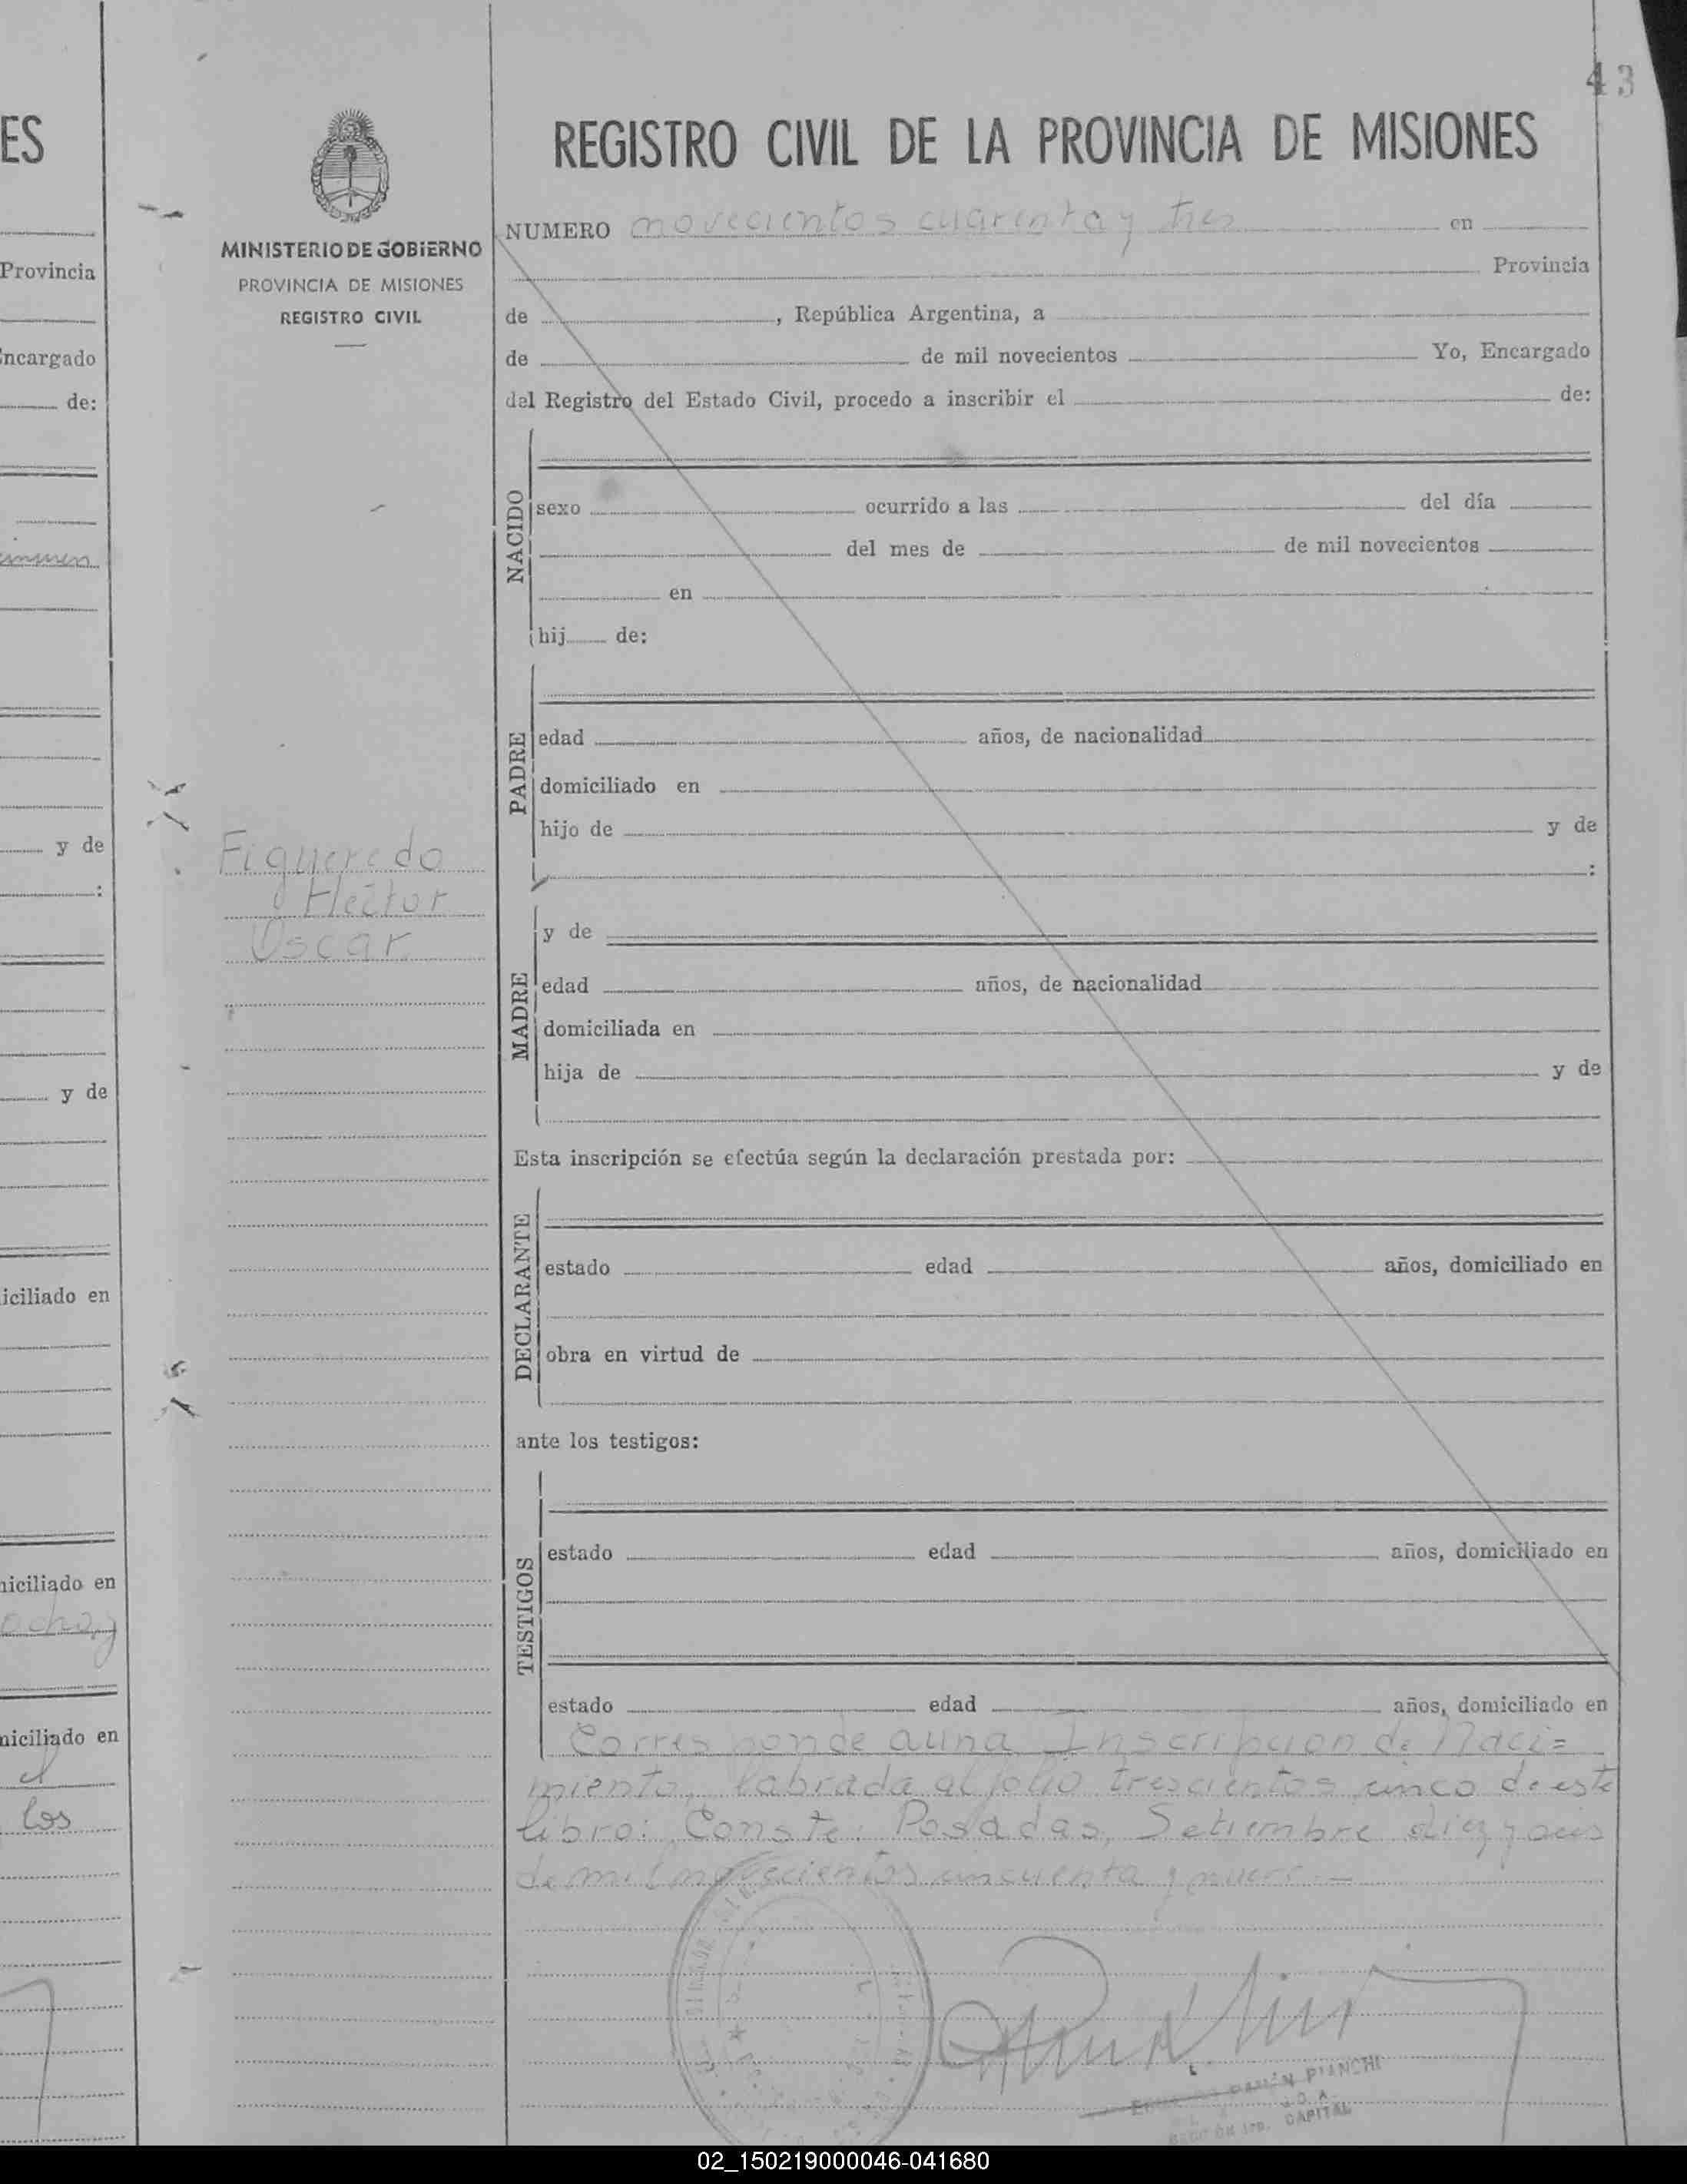 ES
Provincia
Encargado
de:
y de
:
y de
iciliado en
niciliado en
ocho y
niciliado en
el
los
43
MINISTERIO DE GOBIERNO
PROVINCIA DE MISIONES
REGISTRO CIVIL
Figueredo
Hector
Oscar
REGISTRO CIVIL DE LA PROVINCIA DE MISIONES
NUMERO novecientos cuarenta y tres en
Provincia
de , República Argentina, a
de de mil novecientos Yo, Encargado
del Registro del Estado Civil, procedo a inscribir el de:
NACIDO
sexo ocurrido a las del día
del mes de de mil novecientos
en
hij de:
PADRE
edad años, de nacionalidad
domiciliado en
hijo de y de
:
MADRE
y de
edad años, de nacionalidad
domiciliada en
hija de y de
Esta inscripción se efectúa según la declaración prestada por:
DECLARANTE
estado edad años, domiciliado en
obra en virtud de
ante los testigos:
TESTIGOS
estado edad años, domiciliado en
estado edad años, domiciliado en
Corresponde a una Inscripcion de Naci=
miento, labrada al folio trescientos cinco de este
libro: Conste: Posadas, Setiembre diez y seis
de mil novecientos cincuenta y nueve.—
RAMÓN PIANCHI
CAPITAL
02_150219000046-041680